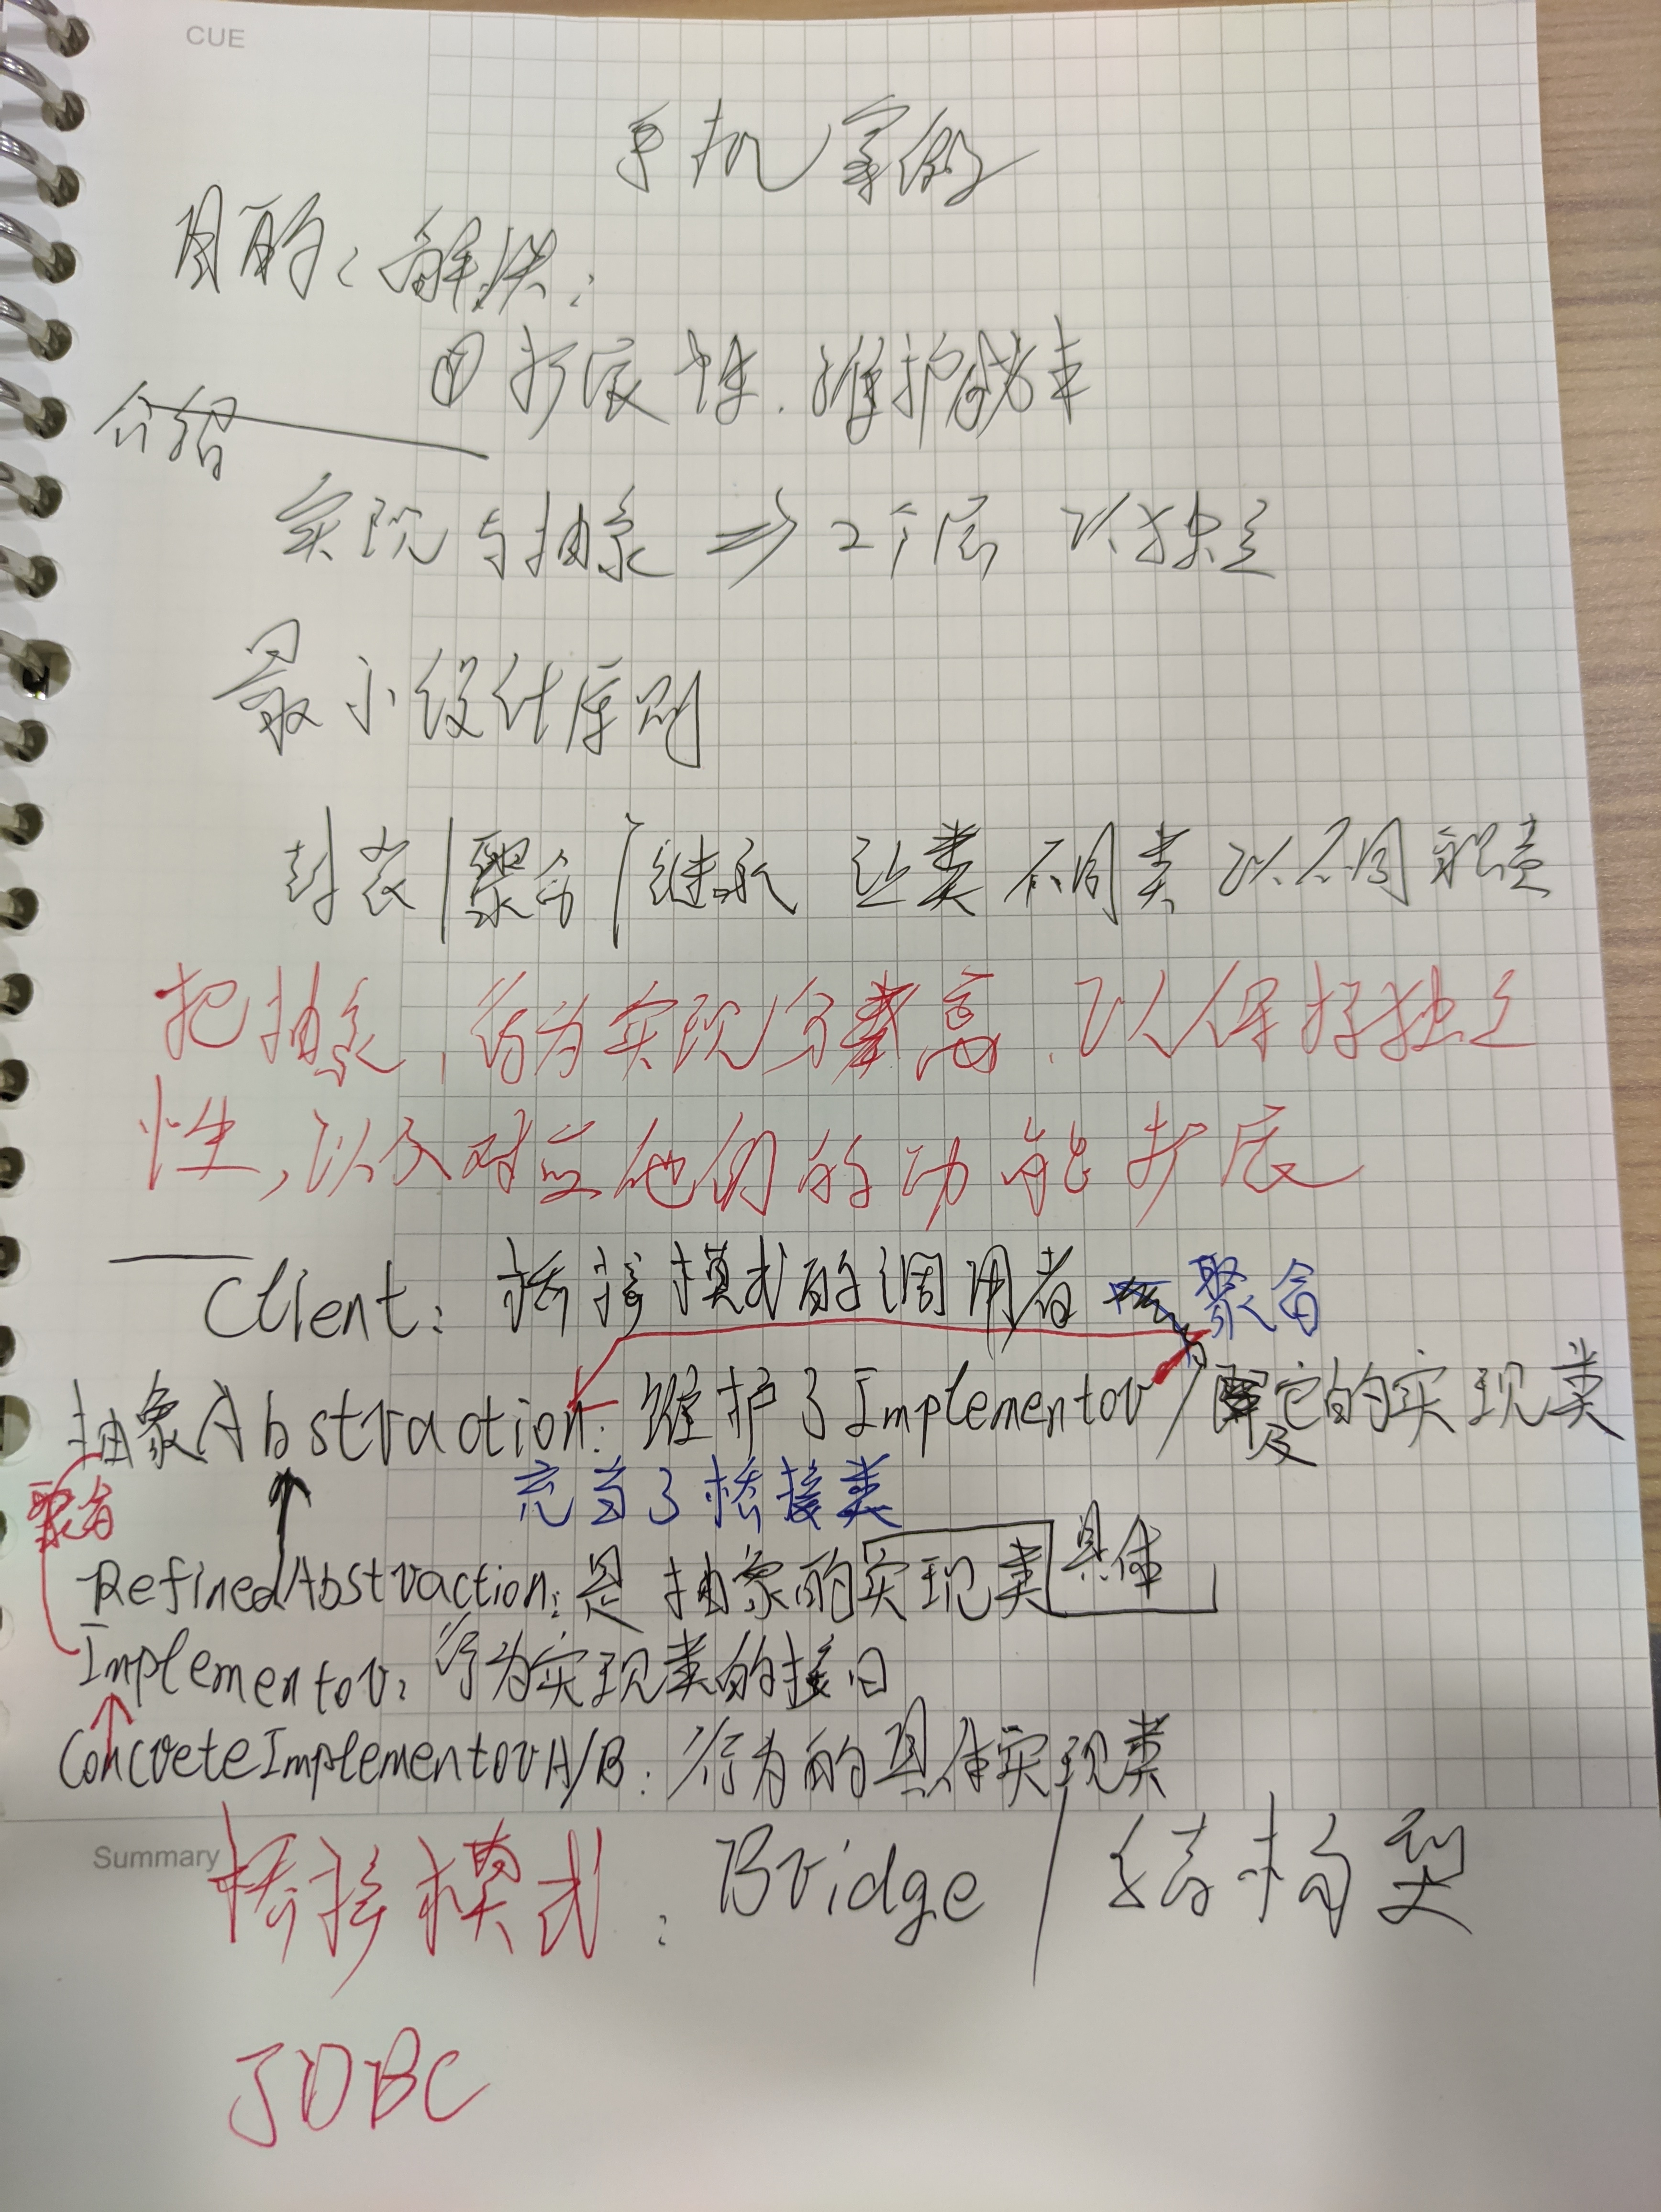 CUE
手机案例
目的、解决:
① 扩展性. 维护成本
介绍
实现与抽象 => 2个层 以独立
最小设计原则
封装/聚合/继承 让类 不同类 以不同职责
把抽象, 行为实现分离, 以保持独立
性, 以及对应他们的功能扩展
Client: 桥接模式的调用者 聚合
抽象Abstraction: 维护了Implementor/及它的实现类
聚合
充当了桥接类
RefinedAbstraction: 是抽象的实现类 具体
Implementor: 行为实现类的接口
ConcreteImplementorA/B: 行为的具体实现类
Summary
桥接模式: Bridge / 结构型
JDBC